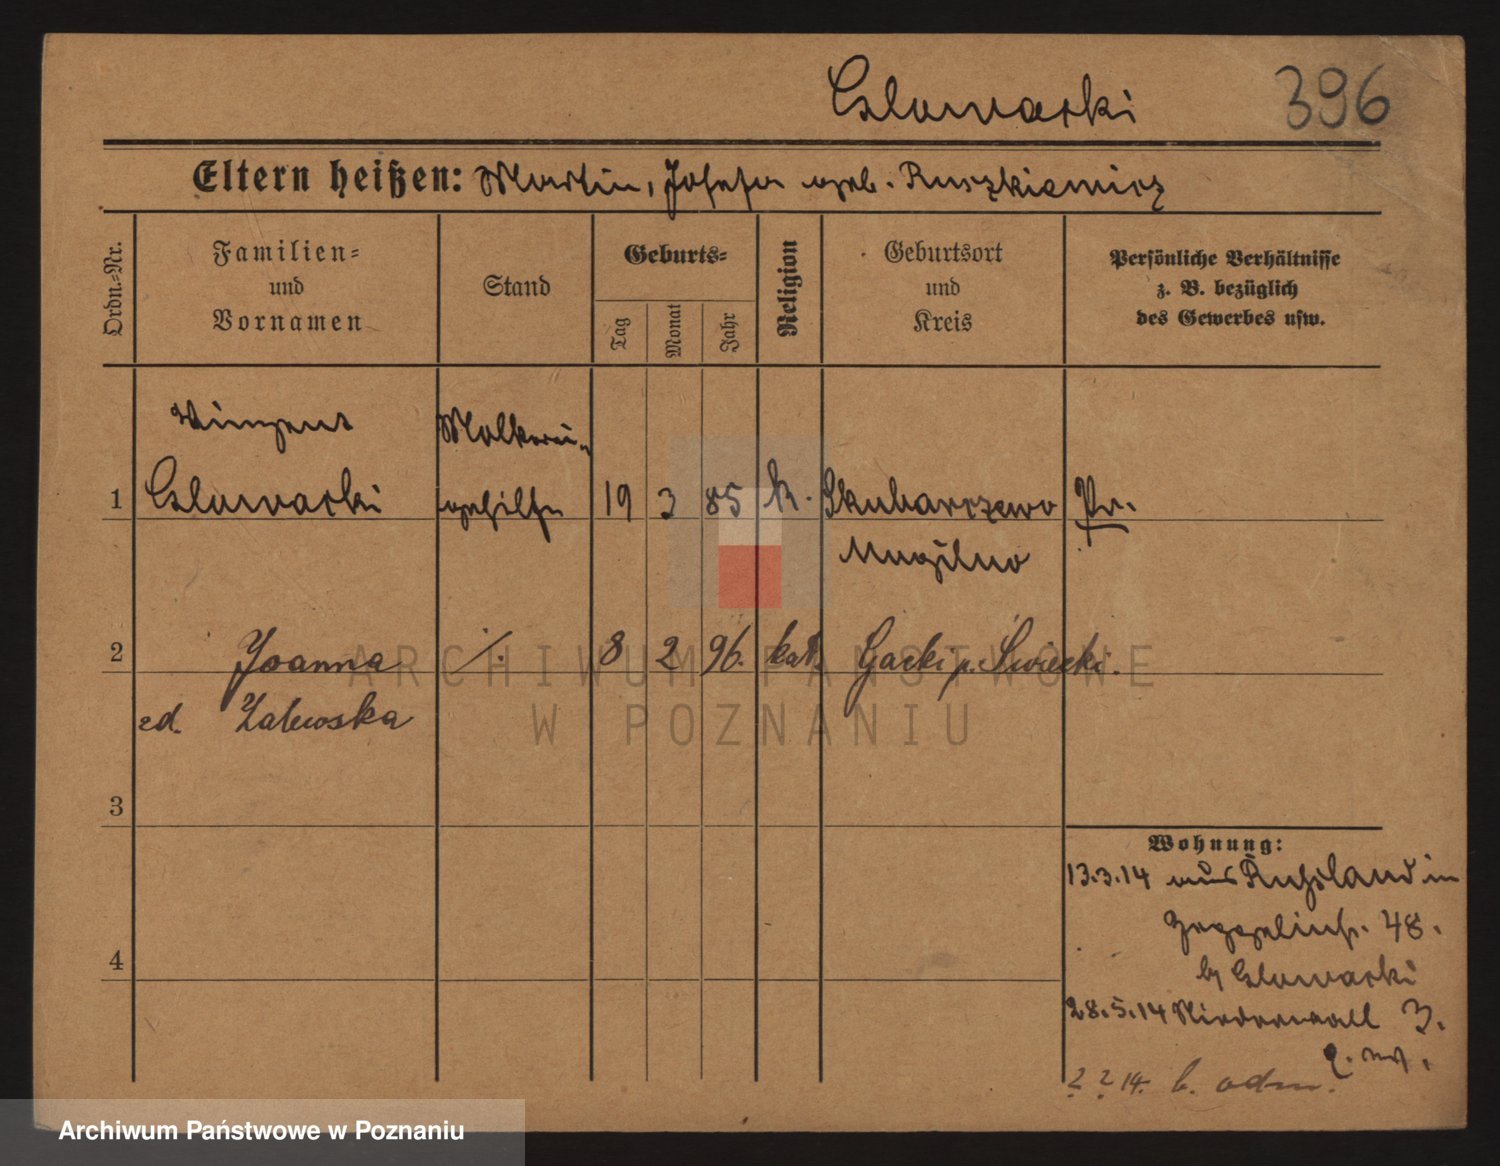 Glowacki 396
Eltern heißen: Martin, Josefa geb. Ruszkiewicz
Ordn.-Nr.
Familien-
und
Vornamen
Stand
Geburts-
Tag
Monat
Jahr
Religion
Geburtsort
und
Kreis
Persönliche Verhältnisse
z. B. bezüglich
des Gewerbes usw.
Vinzent Molkerei-
1 Glowacki gehilfe 19 3 85 k. Skubarczewo Pr.
Mogilno
2 Joanna ./. 8 2 96. kat. Gacki p. Swiecki.
zd. Zalewska
3
Wohnung:
13.3.14 aus Rußland in
Zeppelinstr. 48.
4
b/ Glowacki
28.5.14 Niederwall 3.
? ? 14. b. odm.
ARCHIWUM PAŃSTWOWE
W POZNANIU
Archiwum Państwowe w Poznaniu